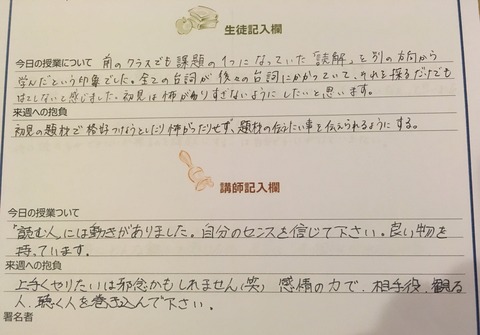 生徒記入欄
今日の授業について 前のクラスでも課題の1つになっていた「誤解」を別の方向から
学んだという印象でした。全ての台詞が後々の台詞にかかっていて、それを探るだけでも
はてしないと感じました。初見は怖がりすぎないようにしたいと思います。
来週への抱負
初見の題材で格好つけようとしたり怖がったりせず、題材の伝えたい事を伝えられるようにする。
講師記入欄
今日の授業ついて
「読む人」には動きがありました。自分のセンスを信じて下さい。良い物を
持っています。
来週への抱負
上手くやりたいは邪念かもしれません(笑) 感情の力で、相手役、観る
人、聴く人を巻き込んで下さい。
署名者